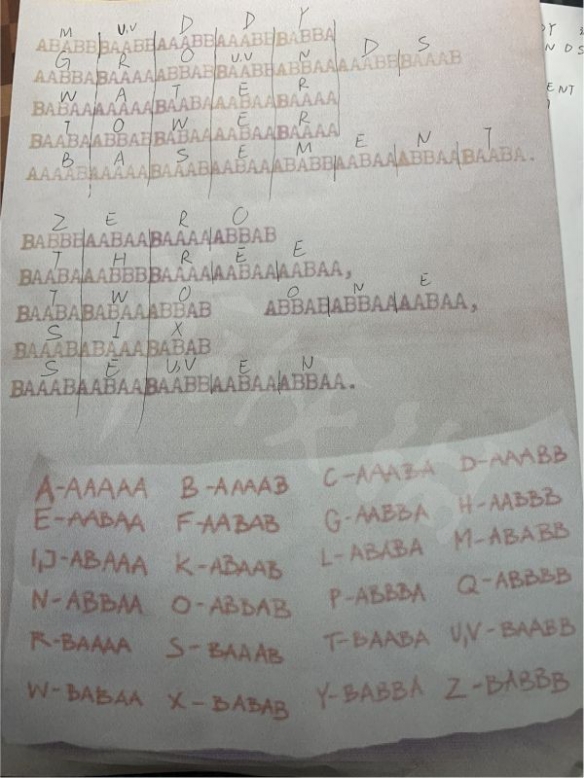 M U,V D D Y
ABABBBAABBAAABBAAABBBABBA
G R O U,V N D S
AABBABAAAAABBABBAABBABBAAAAABBBAAAB
W A T E R
BABAAAAAAABAABAAABAABAAAA
T O W E R
BAABAABBABBABAAAABAABAAAA
B A S E M E N T
AAAABAAAAABAAABAABAAABABBAABAAABBAABAABA.
Z E R O
BABBBAABAABAAAAABBAB
T H R E E
BAABAAABBBBAAAAAABAAAABAA,
T W O O N E
BAABABABAAABBAB ABBABABBAAAABAA,
S I X
BAAABABAAABABAB
S E U,V E N
BAAABAABAABAABBAABAAABBAA.
A-AAAAA B-AAAAB C-AAABA D-AAABB
E-AABAA F-AABAB G-AABBA H-AABBB
I,J-ABAAA K-ABAAB L-ABABA M-ABABB
N-ABBAA O-ABBAB P-ABBBA Q-ABBBB
R-BAAAA S-BAAAB T-BAABA U,V-BAABB
W-BABAA X-BABAB Y-BABBA Z-BABBB
DY
NDS
ENT